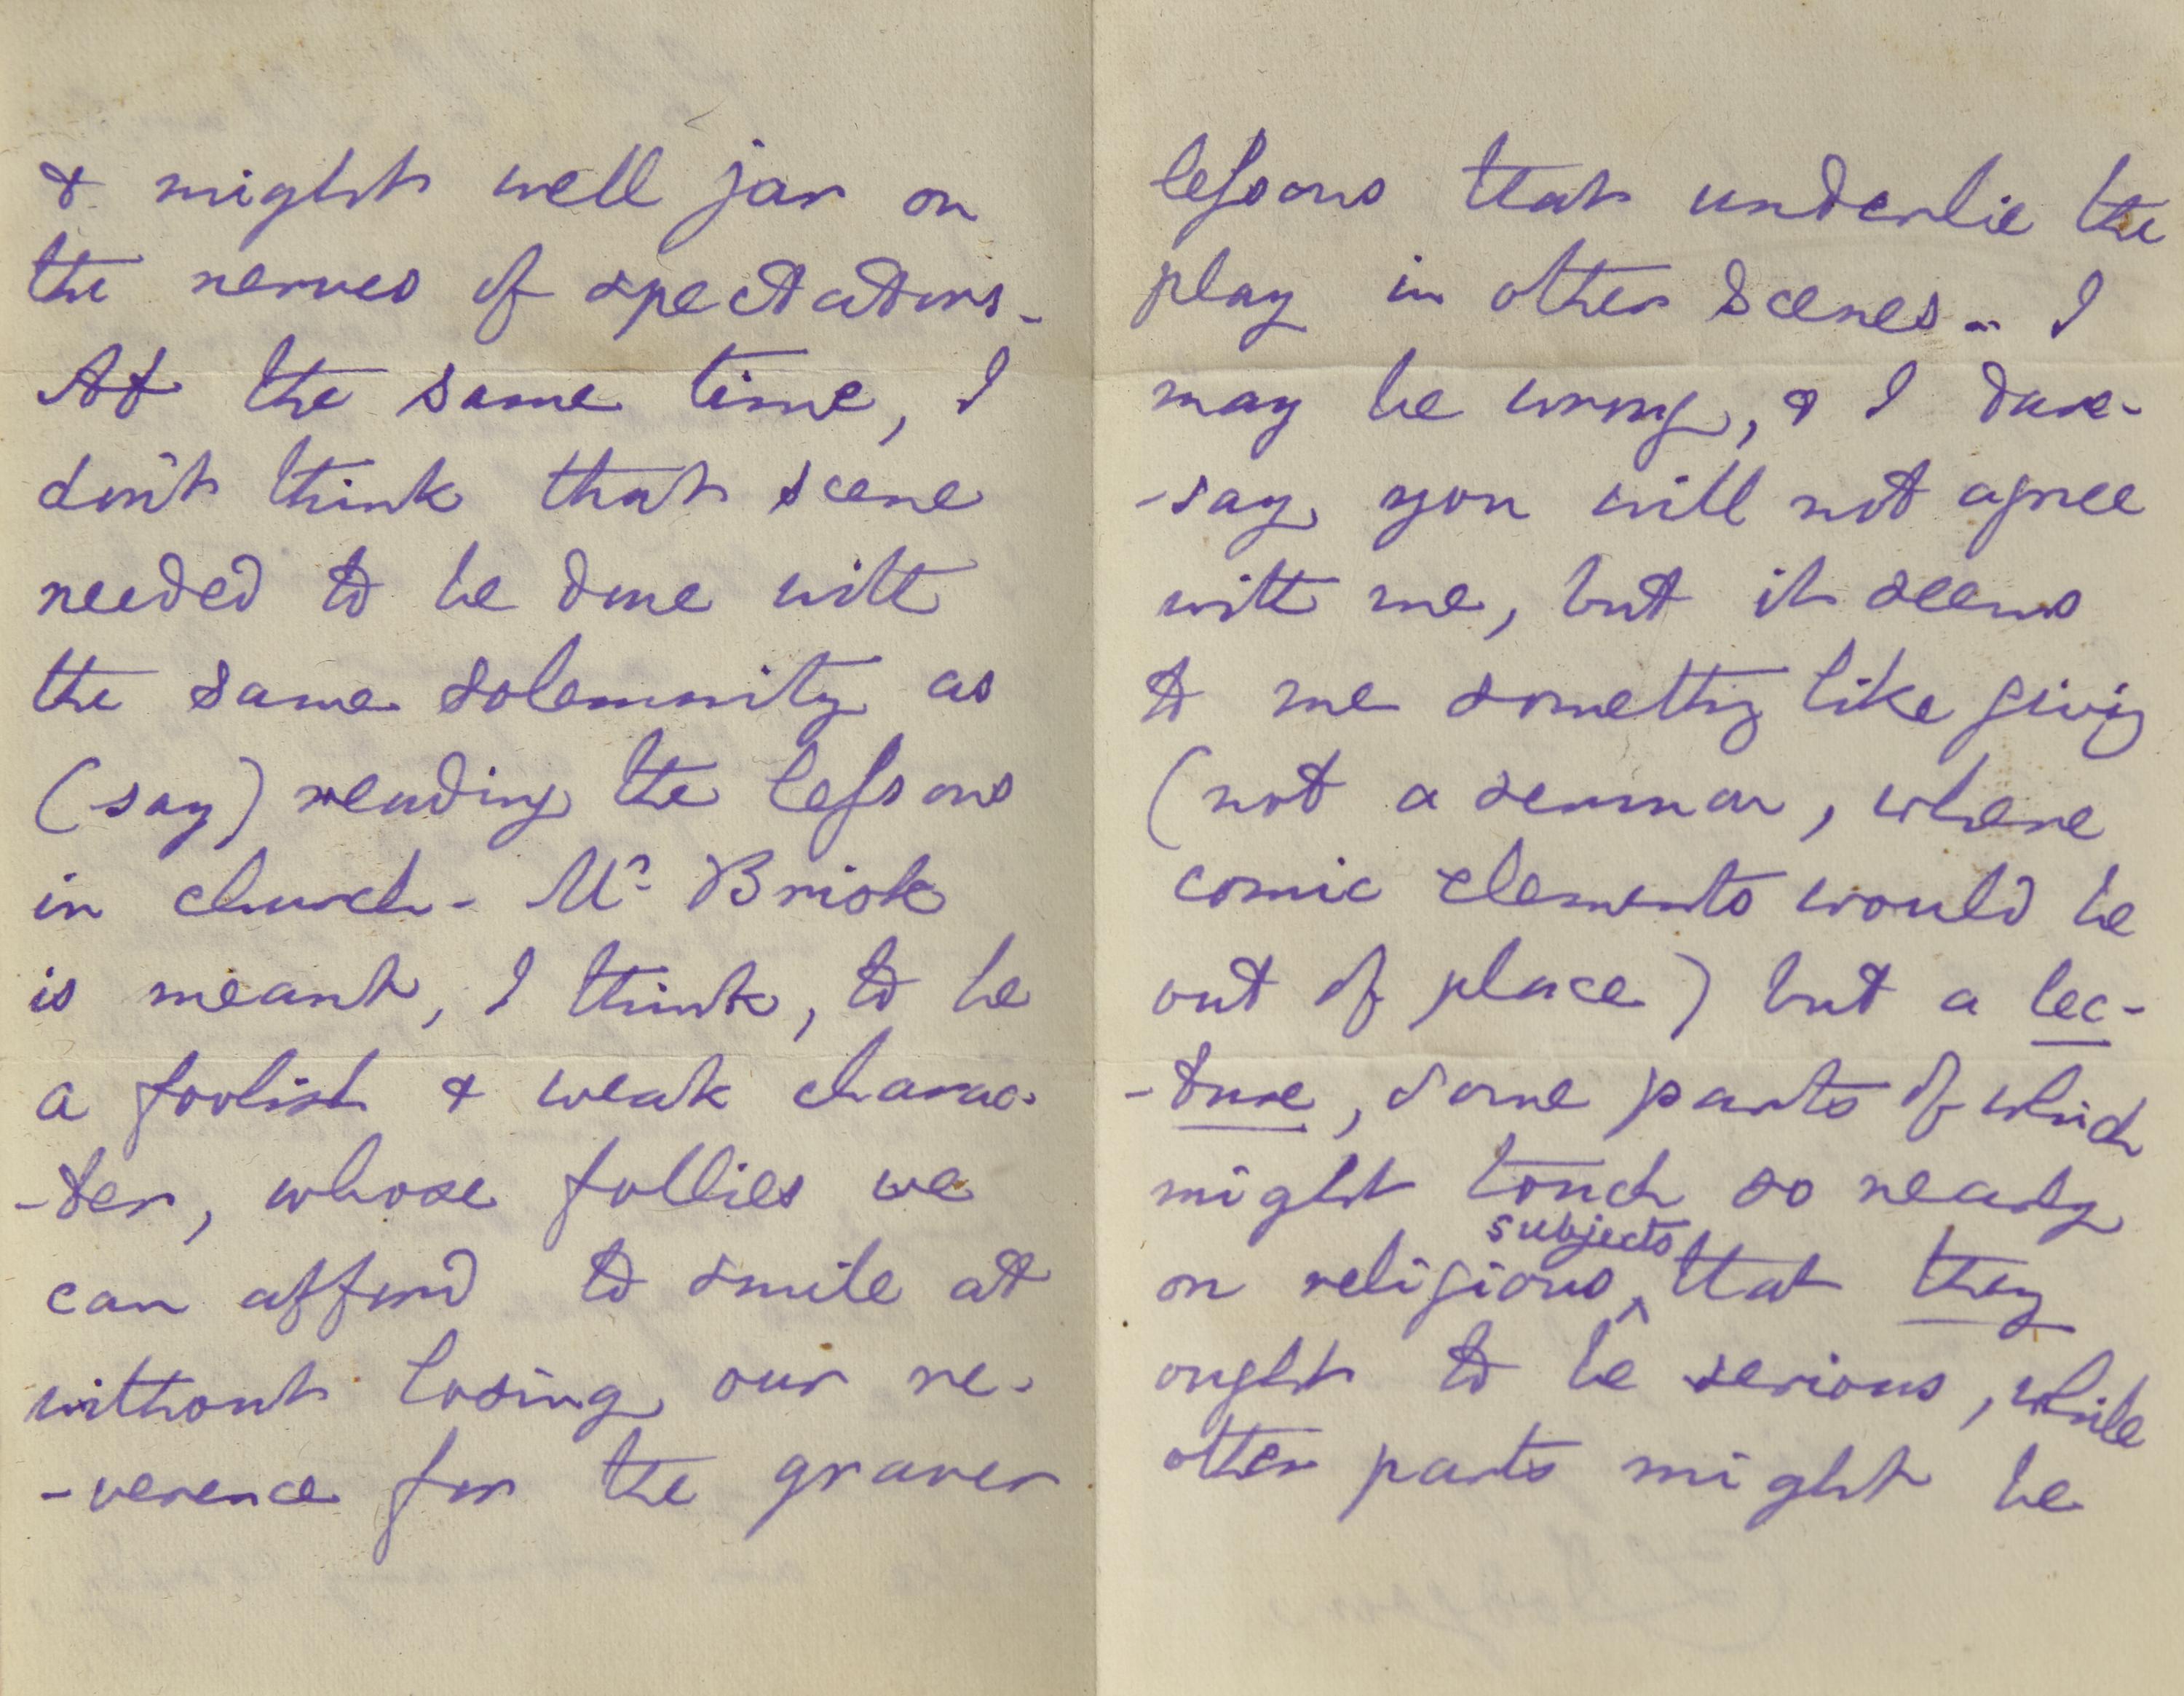 & might well jar on
the nerves of spectators.
At the same time, I
don't think that scene
needed to be done with
the same solemnity as
(say) reading the lessons
in church. Mr. Brisk
is meant, I think, to be
a foolish & weak charac-
-ter, whose follies we
can afford to smile at
without losing our re-
-verence for the graver
lessons that underlie the
play in other scenes. I
may be wrong, & I dare-
-say you will not agree
with me, but it seems
to me something like giving
(not a sermon, where
comic elements would be
out of place) but a lec-
-ture, some parts of which
might touch so nearly
subjects
on religious ^ that they
ought to be serious, while
other parts might be